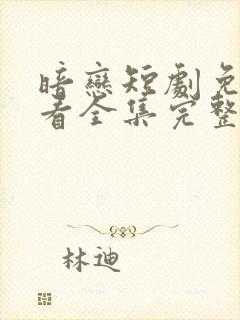 暗戀短劇免
看全集完整
林迪